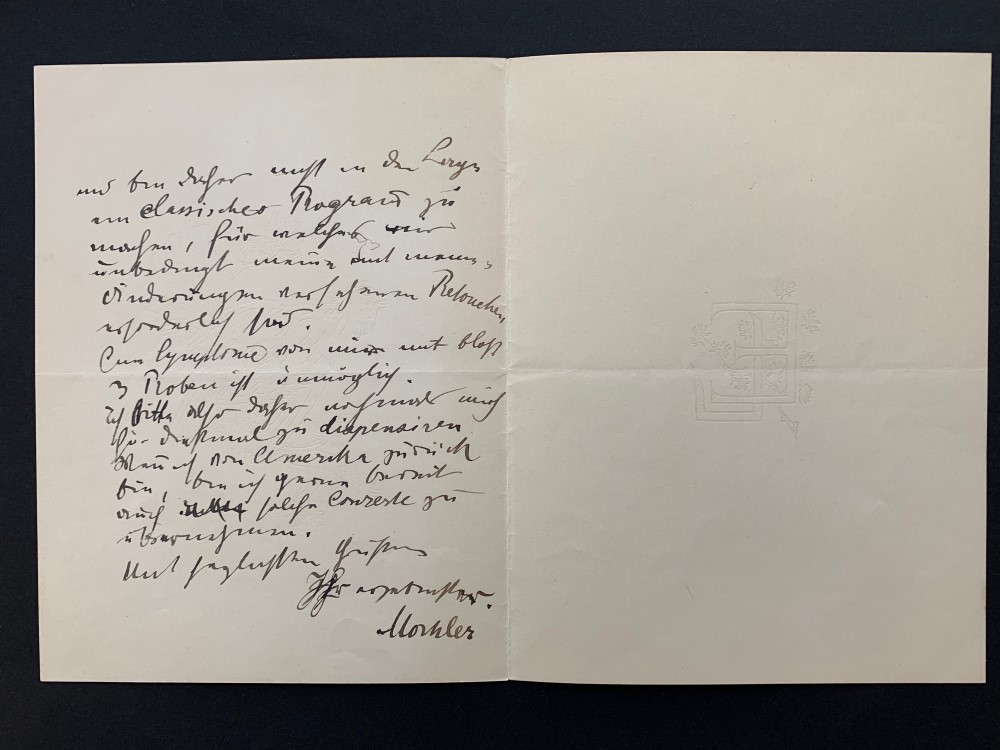 und bin daher nicht in der Lage
ein classisches Programm zu
machen, für welches mir
unbedingt meine mit meinen
Änderungen versehenen Retouchen
erforderlich sind.
Eine Symphonie von mir mit bloß
3 Proben ist unmöglich.
Ich bitte also daher nochmals mich
für diesmal zu dispensiren
Wenn ich von Amerika zurück
bin, bin ich gerne bereit
auch solche Conzerte zu
übernehmen.
Mit herzlichsten Grüßen
Ihr ergebenster
Mahler